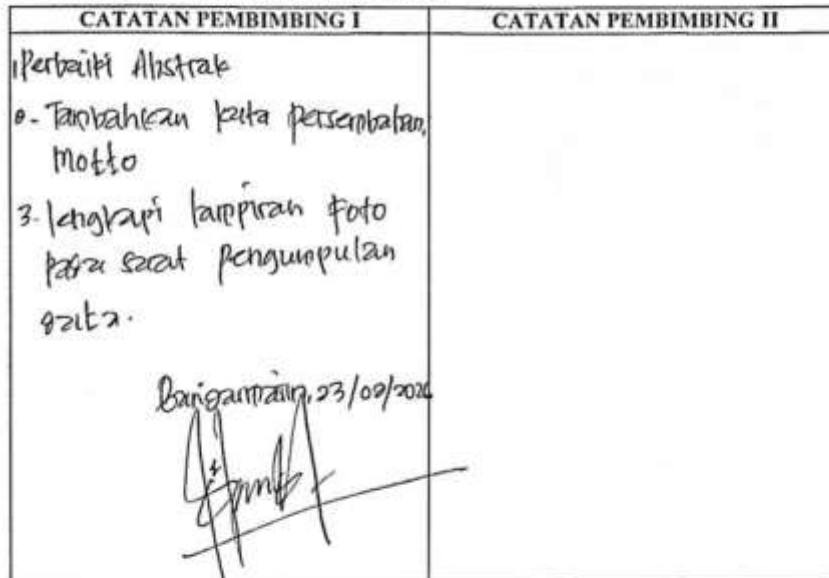 CATATAN PEMBIMBING I
CATATAN PEMBIMBING II
1 Perbaiki Abstrak
2- Tambahkan kata persembahan,
Motto
3. lengkapi lampiran Foto
pada saat pengumpulan
data.
23/02/2026